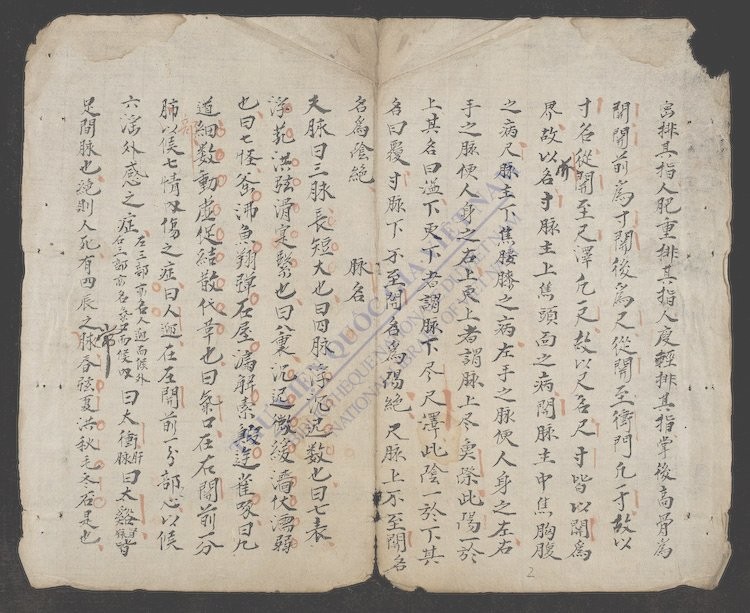 密排其指人肥重排其指人瘦輕排其指掌後高骨為
關關前為寸關後為尺從關至衝門凡一寸故以
寸名從關至尺澤凡一尺故以尺名尺寸皆以關為
界故以名寸脉主上焦頭面之病關脉主中焦胸腹
之病尺脉主下焦腰膝之病左手之脉便人身之左右
手之脉便人身之右也更上者謂脉上尽魚際此陽一於
上其名曰溢下更下者謂脉下尽尺澤此陰一於下其
名曰覆寸脉下不至關名為陽絶尺脉上不至關名
名為陰絶 脉名
夫脉曰三脉長短大也曰四脉浮沉迟数也曰七表
浮芤洪弦滑寔緊也曰八裏沉迟微緩濇伏濡弱
也曰七怪釜沸魚翔彈石屋漏解索蝦遊雀啄曰九
道細数動虚促結散代革也曰氣口在右關前一分
肺以候七情内傷之症曰人迎在左關前一分部心以候
六滛外感之症左三部亦名人迎而候外右三部亦名氣口而候内曰太衝脉肝曰太谿
足間脉也絶則人死有四辰之脉春弦夏洪秋毛冬石是也
常
2
THƯ VIỆN QUỐC GIA VIỆT NAM
BIBLIOTHEQUE NATIONALE DU VIETNAM
NATIONAL LIBRARY OF VIETNAM